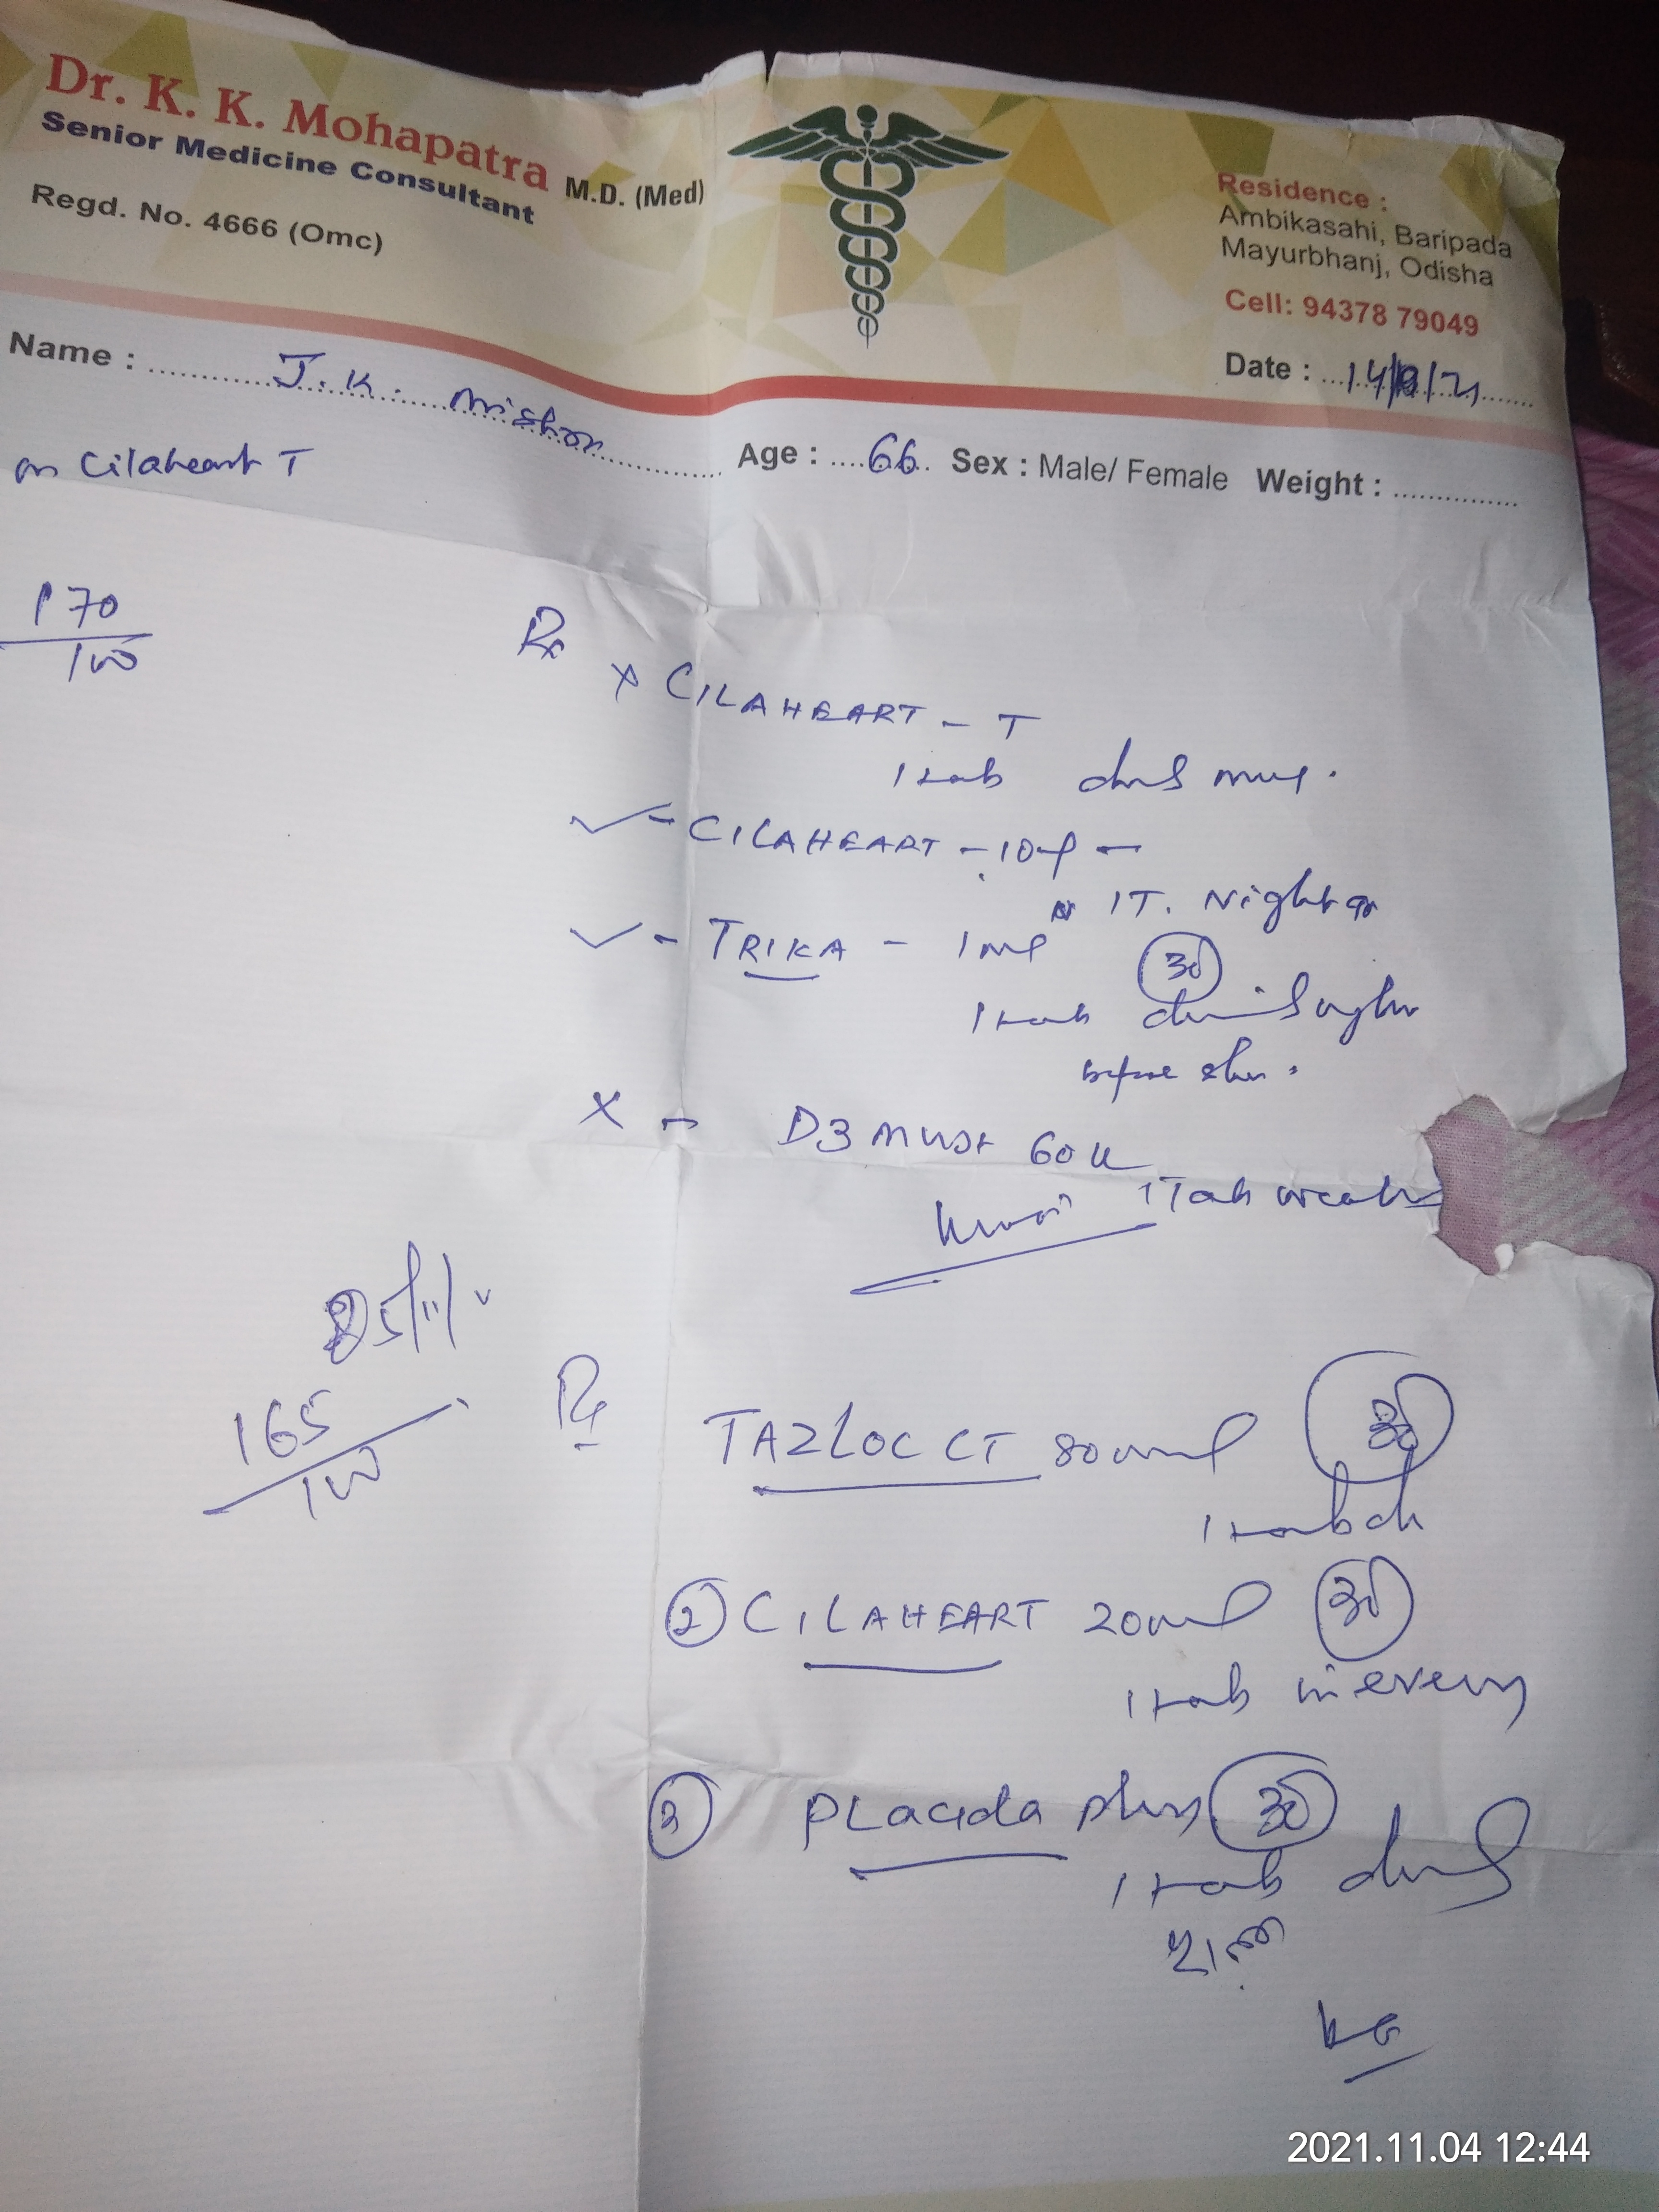 Dr. K. K. Mohapatra M.D. (Med)
Senior Medicine Consultant
Regd. No. 4666 (Omc)
Residence :
Ambikasahi, Baripada
Mayurbhanj, Odisha
Cell: 94378 79049
Date : 14/ /21
Name : J. K. Mishra
Age : 66 Sex : Male/ Female Weight :
on Cilaheart T
170
100
Rx
x CILAHEART - T
1 tab
✓ - CILAHEART - 10
1T. Night
✓ - TRIKA - 1 mg
30
1 tab
before
x - D3 MUST 60 K
1 Tab
165
100
Rx
TAZLOC CT 80 mg 30
1 tab
② CILAHEART 20 mg 30
1 tab in evening
③ PLacida plus 30
1 tab
2021.11.04 12:44